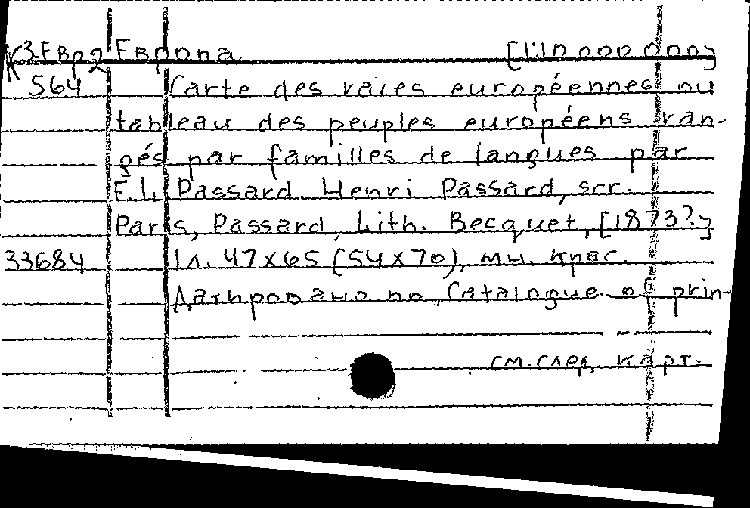 К3.Евр2 Европа [1:10 000 000]
564 Carte des races européennes ou
tableau des peuples européens ran-
gés par familles de langues par
F.L. Passard Henri Passard, scr.
Paris, Passard, Lith. Becquet, [1873?]
33684 1л. 47x65 (54x70), мн. крас.
Датировано по Catalogue of prin-
см. след. карт.